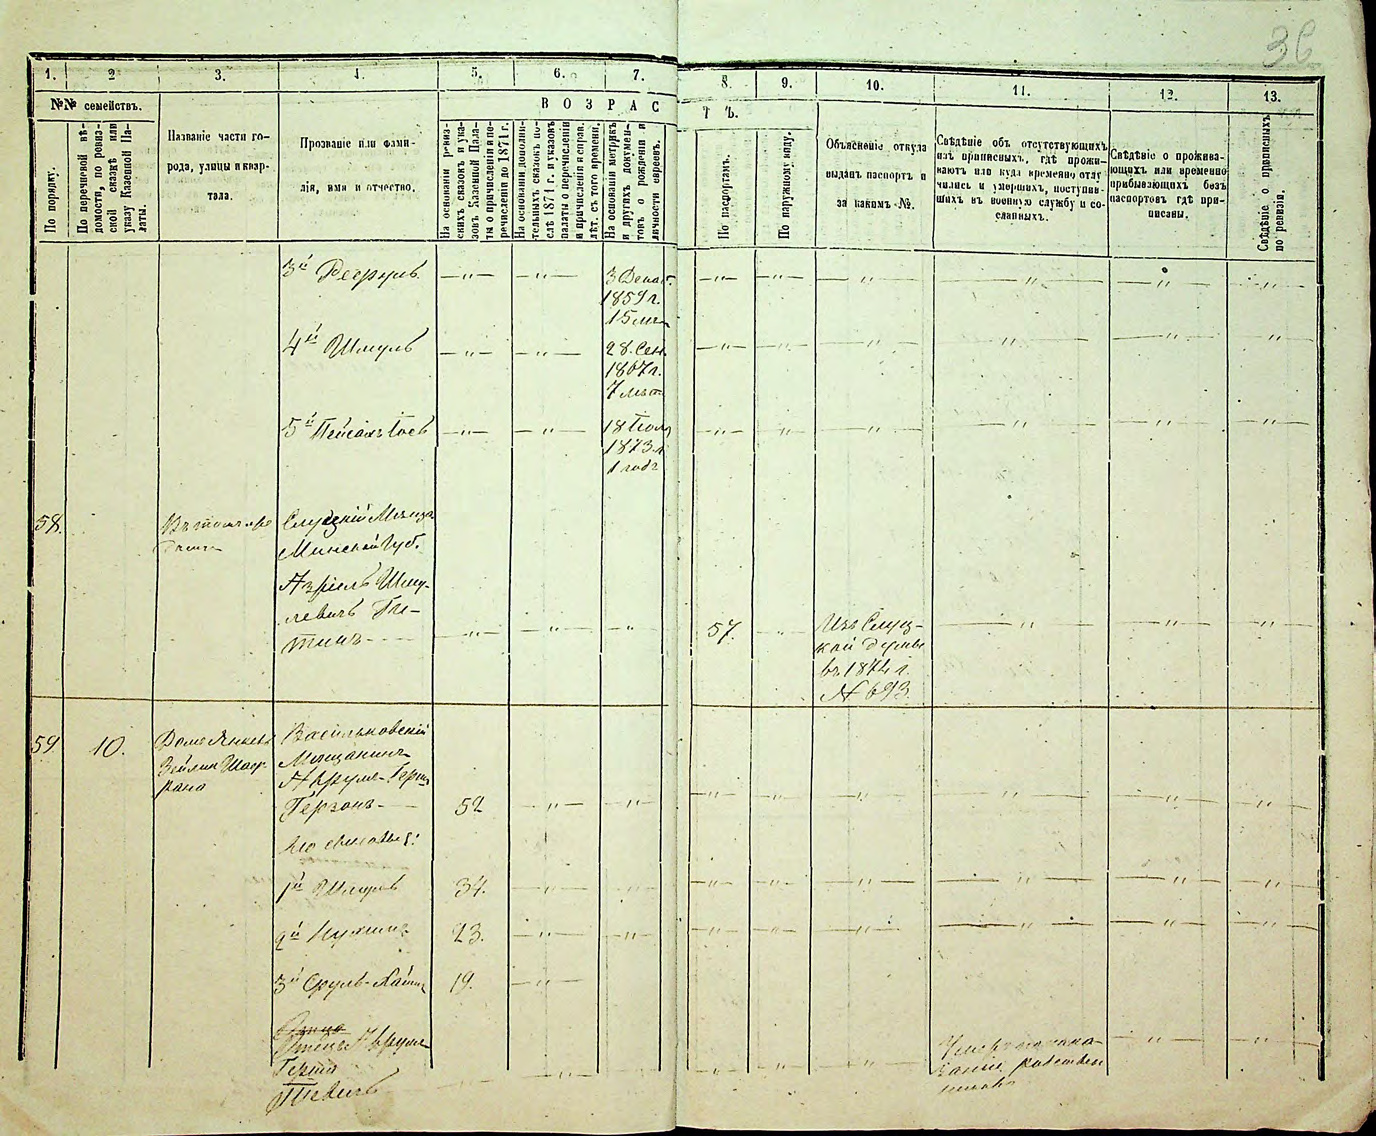 36
1.
2
3.
4.
5.
6.
7.
8.
9.
10.
11.
12.
13.
№№ семействъ.
По порядку.
По перечневой вѣ-
домости, по ревиз-
ской сказкѣ или
указу Казенной Па-
латы.
Названіе части го-
рода, улицы и квар-
тала.
Прозваніе или фами-
лія, имя и отчество.
ВОЗРАС
ТЪ.
На основаніи ревиз-
скихъ сказокъ и ука-
зовъ Казенной Пала-
ты о причисленіи и пе-
речисленіи до 1871 г.
На основаніи дополни-
тельныхъ сказокъ по-
слѣ 1871 г. и указовъ
палаты о перечисленіи
и причисленіи и справ.
лѣт. съ того времени.
На основаніи метрикъ
и другихъ докумен-
товъ о рожденіи и
личности евреевъ.
По паспортамъ.
По наружному виду.
Объясненіе откуда
выданъ паспортъ и
за какимъ №.
Свѣдѣніе объ отсутствующихъ
изъ приписныхъ, гдѣ прожи-
ваютъ или куда временно отлу
чились и умершихъ, поступив-
шихъ въ военную службу и со-
сланныхъ.
Свѣдѣніе о прожива-
ющихъ или временно
прибывающихъ безъ
паспортовъ гдѣ при-
писаны.
Свѣдѣніе о приписныхъ
по ревизіи.
3й
3 Декаб.
1859 г.
15 лѣт
4й Шмуль
28 Сен.
1867 г.
7 лѣт
5й Пейсахъ Іосъ
18 Іюля
1873 г.
1 годъ
58.
Въ томъ же
домѣ
Слуцкій Мѣщ.
Минской Губ.
Азріиль Шму-
левичъ
57.
Изъ Слуц-
кой думы
въ 1874 г.
№ 693.
59.
10.
Домъ Янкеля
Зейлик
Васильковскій
Мѣщанинъ
Аврумъ-Герш
Герзонъ
52
Его сыновья:
1й Шмуль
34.
2й Нухимъ
23.
3й Сруль-Хаим
19.
Отецъ Аврума
Герша
Умеръ по пока-
занію родствен
никовъ